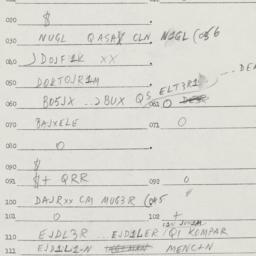 020 $
030 NUGL QASAX CLN N1GL (056
040 ) DOJF1K XX
050 DOKTOJR1M
060 BOSJX ..) BUX QS ELT3R1 061 0
070 BAJXELE 071 0
080 0
090 $
091 $+ QRR 092 0
100 DAJRXX CM MUG3R (
101 0 102 +
110 EJDL3R ... EJD1LER QI KOMPAR
111 EJD1L1-N MENC+N